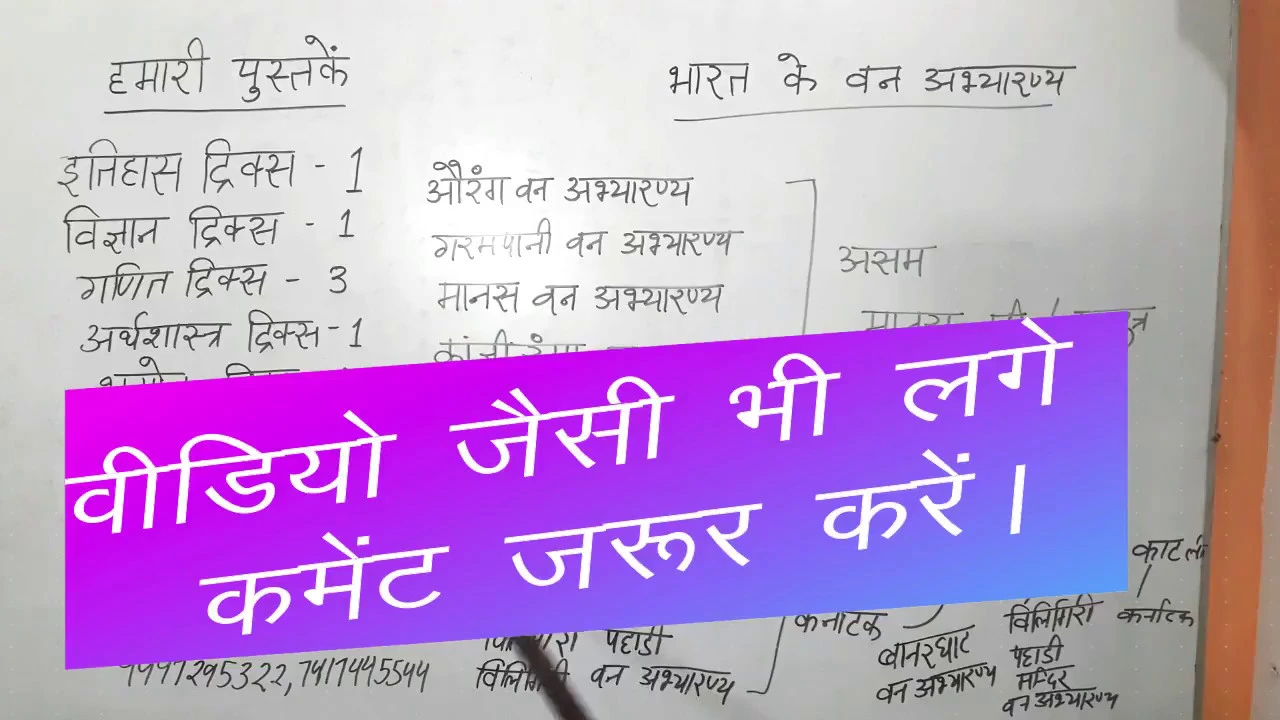 हमारी पुस्तकें
भारत के वन अभ्यारण्य
इतिहास ट्रिक्स - 1
विज्ञान ट्रिक्स - 1
गणित ट्रिक्स - 3
अर्थशास्त्र ट्रिक्स - 1
औरंग वन अभ्यारण्य
गरमपानी वन अभ्यारण्य
मानस वन अभ्यारण्य
असम
वीडियो जैसी भी लगे
कमेंट जरूर करें।
पहाडी
विलिगिरी वन अभ्यारण्य
कर्नाटक
बानरघाट
वन अभ्यारण्य
विलिगिरी
पहाडी
मन्दिर
वन अभ्यारण्य
कर्नाटक